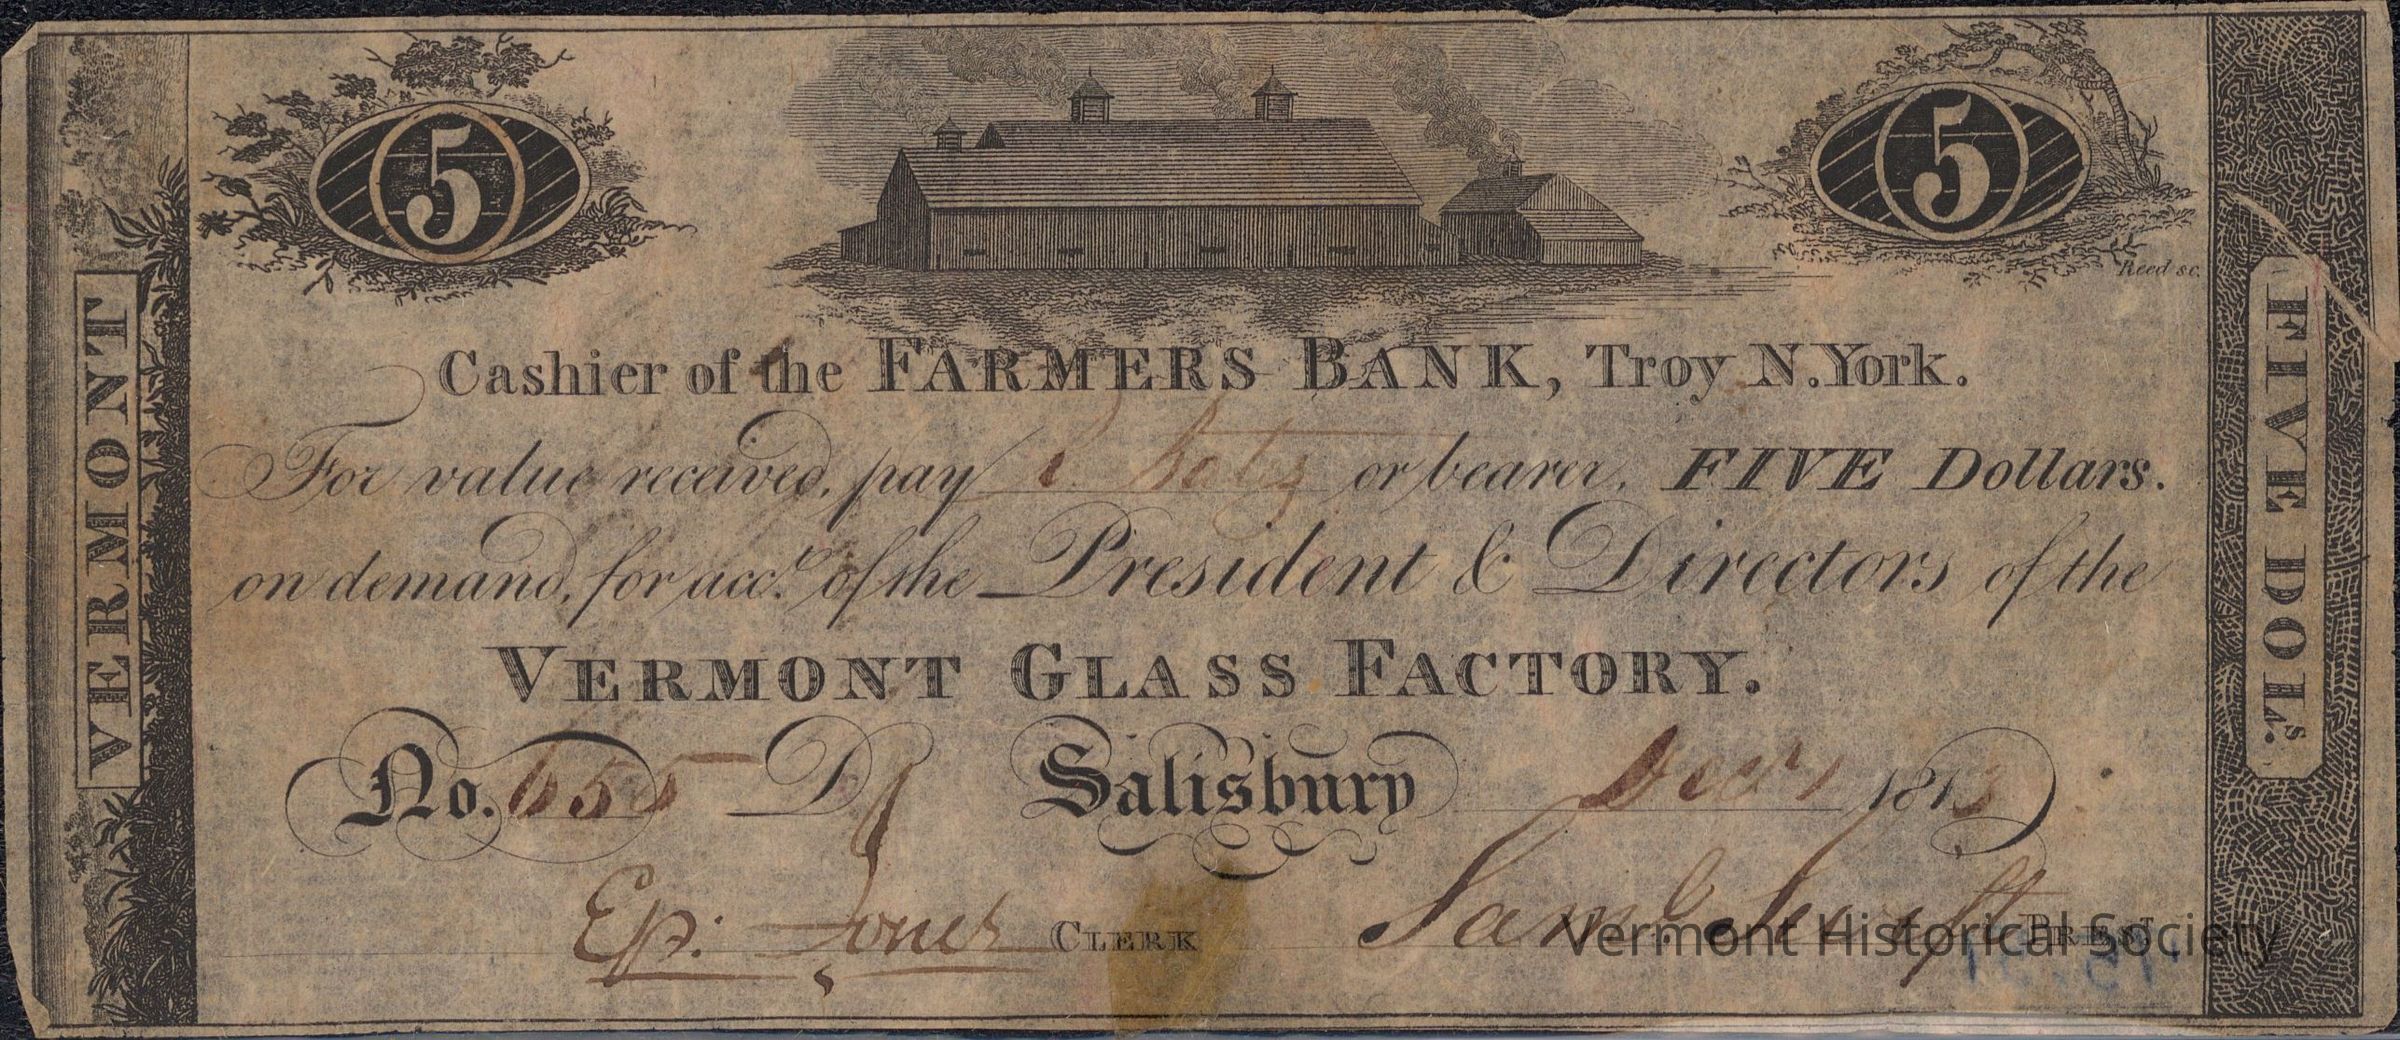 5
5
Reed sc.
VERMONT
FIVE DOLS.
Cashier of the FARMERS BANK, Troy N. York.
For value received, pay or bearer, FIVE Dollars.
on demand, for acct. of the President & Directors of the
VERMONT GLASS FACTORY.
No. 655 D Salisbury Decr 1 1813
Ep: Jones CLERK Saml Swift PREST
Vermont Historical Society